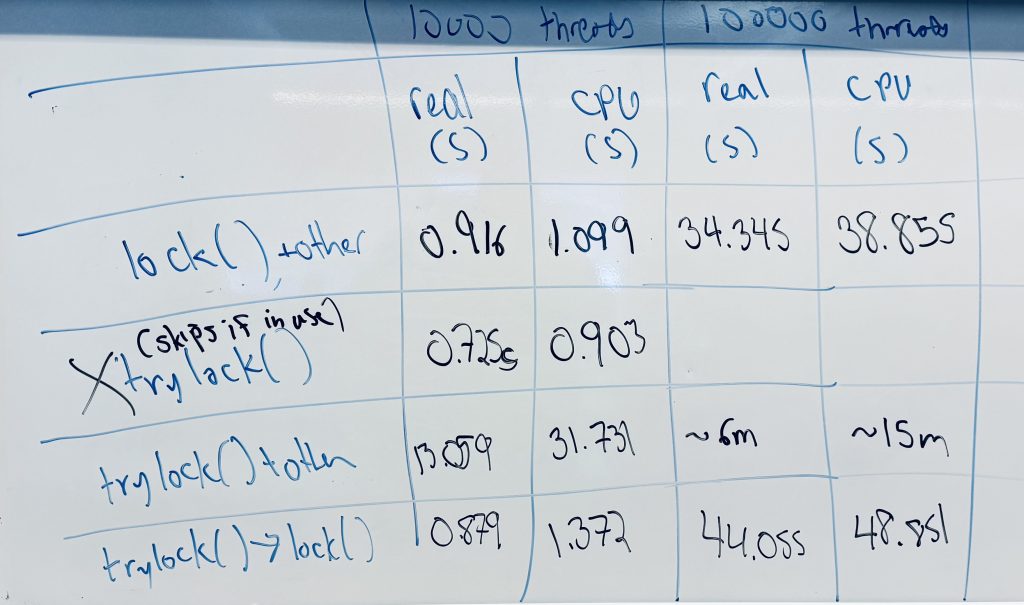 10000 threads 100000 threads
real CPU real CPU
(s) (s) (s) (s)
lock() + other 0.916 1.099 34.345 38.855
(skips if in use)
X trylock() 0.725s 0.903
trylock() + other 13.059 31.731 ~6m ~15m
trylock() → lock() 0.879 1.372 44.055 48.851